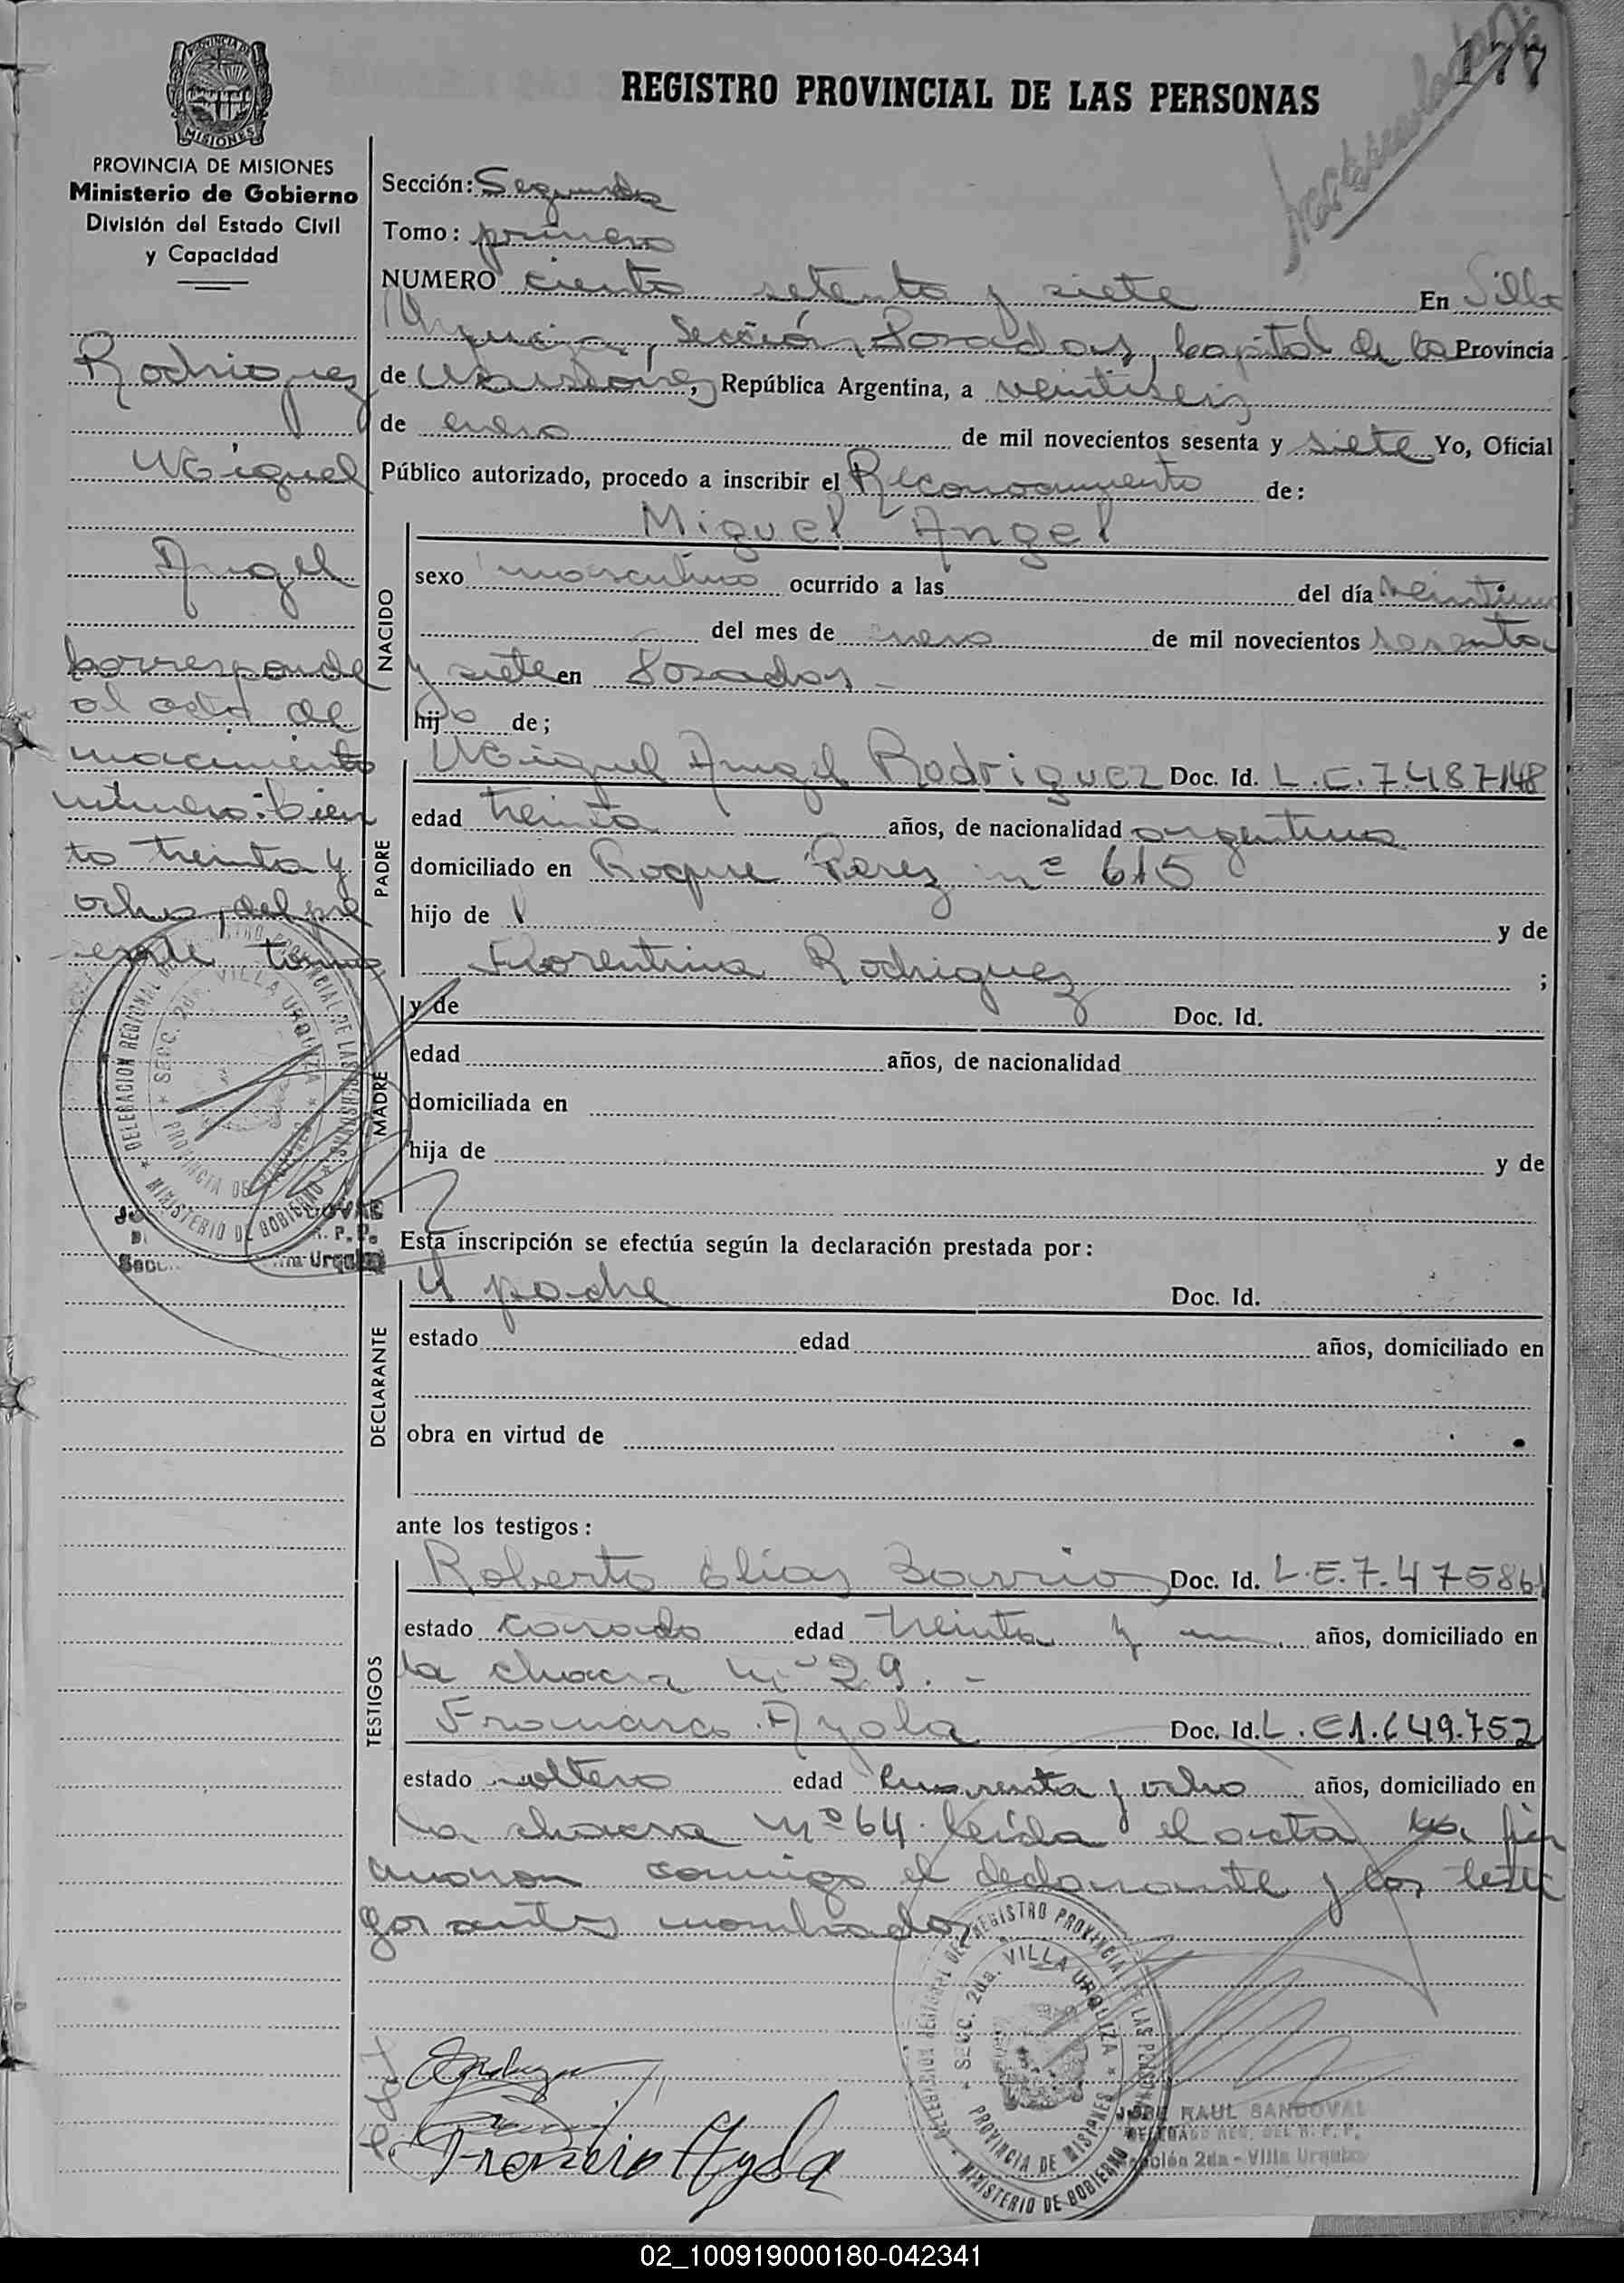 177
REGISTRO PROVINCIAL DE LAS PERSONAS
PROVINCIA DE MISIONES
Ministerio de Gobierno
División del Estado Civil
y Capacidad
Rodriguez
Miguel
Angel
Corresponde
al acta de
nacimiento
número: Cien
to treinta y
ocho, del pre
sente tomo
Sección: Segunda
Tomo: primero
NUMERO ciento setenta y siete En Villa
Urquiza, Sección Posadas, Capital de la Provincia
de Misiones, República Argentina, a veintiseis
de enero de mil novecientos sesenta y siete Yo, Oficial
Público autorizado, procedo a inscribir el Reconocimiento de:
NACIDO
Miguel Angel
sexo masculino ocurrido a las del día veintiuno
del mes de enero de mil novecientos sesenta
y siete en Posadas -
hijo de;
PADRE
Miguel Angel Rodriguez Doc. Id. L.E.7.487148
edad treinta años, de nacionalidad argentino
domiciliado en Roque Perez nº 615
hijo de y de
Florentina Rodriguez ;
MADRE
y de Doc. Id.
edad años, de nacionalidad
domiciliada en
hija de y de
Esta inscripción se efectúa según la declaración prestada por:
DECLARANTE
el padre Doc. Id.
estado edad años, domiciliado en
obra en virtud de
ante los testigos:
TESTIGOS
Roberto Elias Barrios Doc. Id. L.E.7.475861
estado casado edad treinta y un años, domiciliado en
la chacra nº 29. -
Francisco Ayala Doc. Id. L.E1.649.752
estado soltero edad cuarenta y ocho años, domiciliado en
la chacra nº 64. Leída el acta la fir
maron conmigo el declarante y los testi
gos antes nombrados
DELEGACION REGIONAL DEL REGISTRO PROVINCIAL DE LAS PERSONAS
SECC. 2da. VILLA URQUIZA
PROVINCIA DE MISIONES
MINISTERIO DE GOBIERNO
JOSE RAUL SANDOVAL
DELEGADO REG. DEL R. P. P.
Sección 2da - Villa Urquiza
Francisco Ayala
02_100919000180-042341